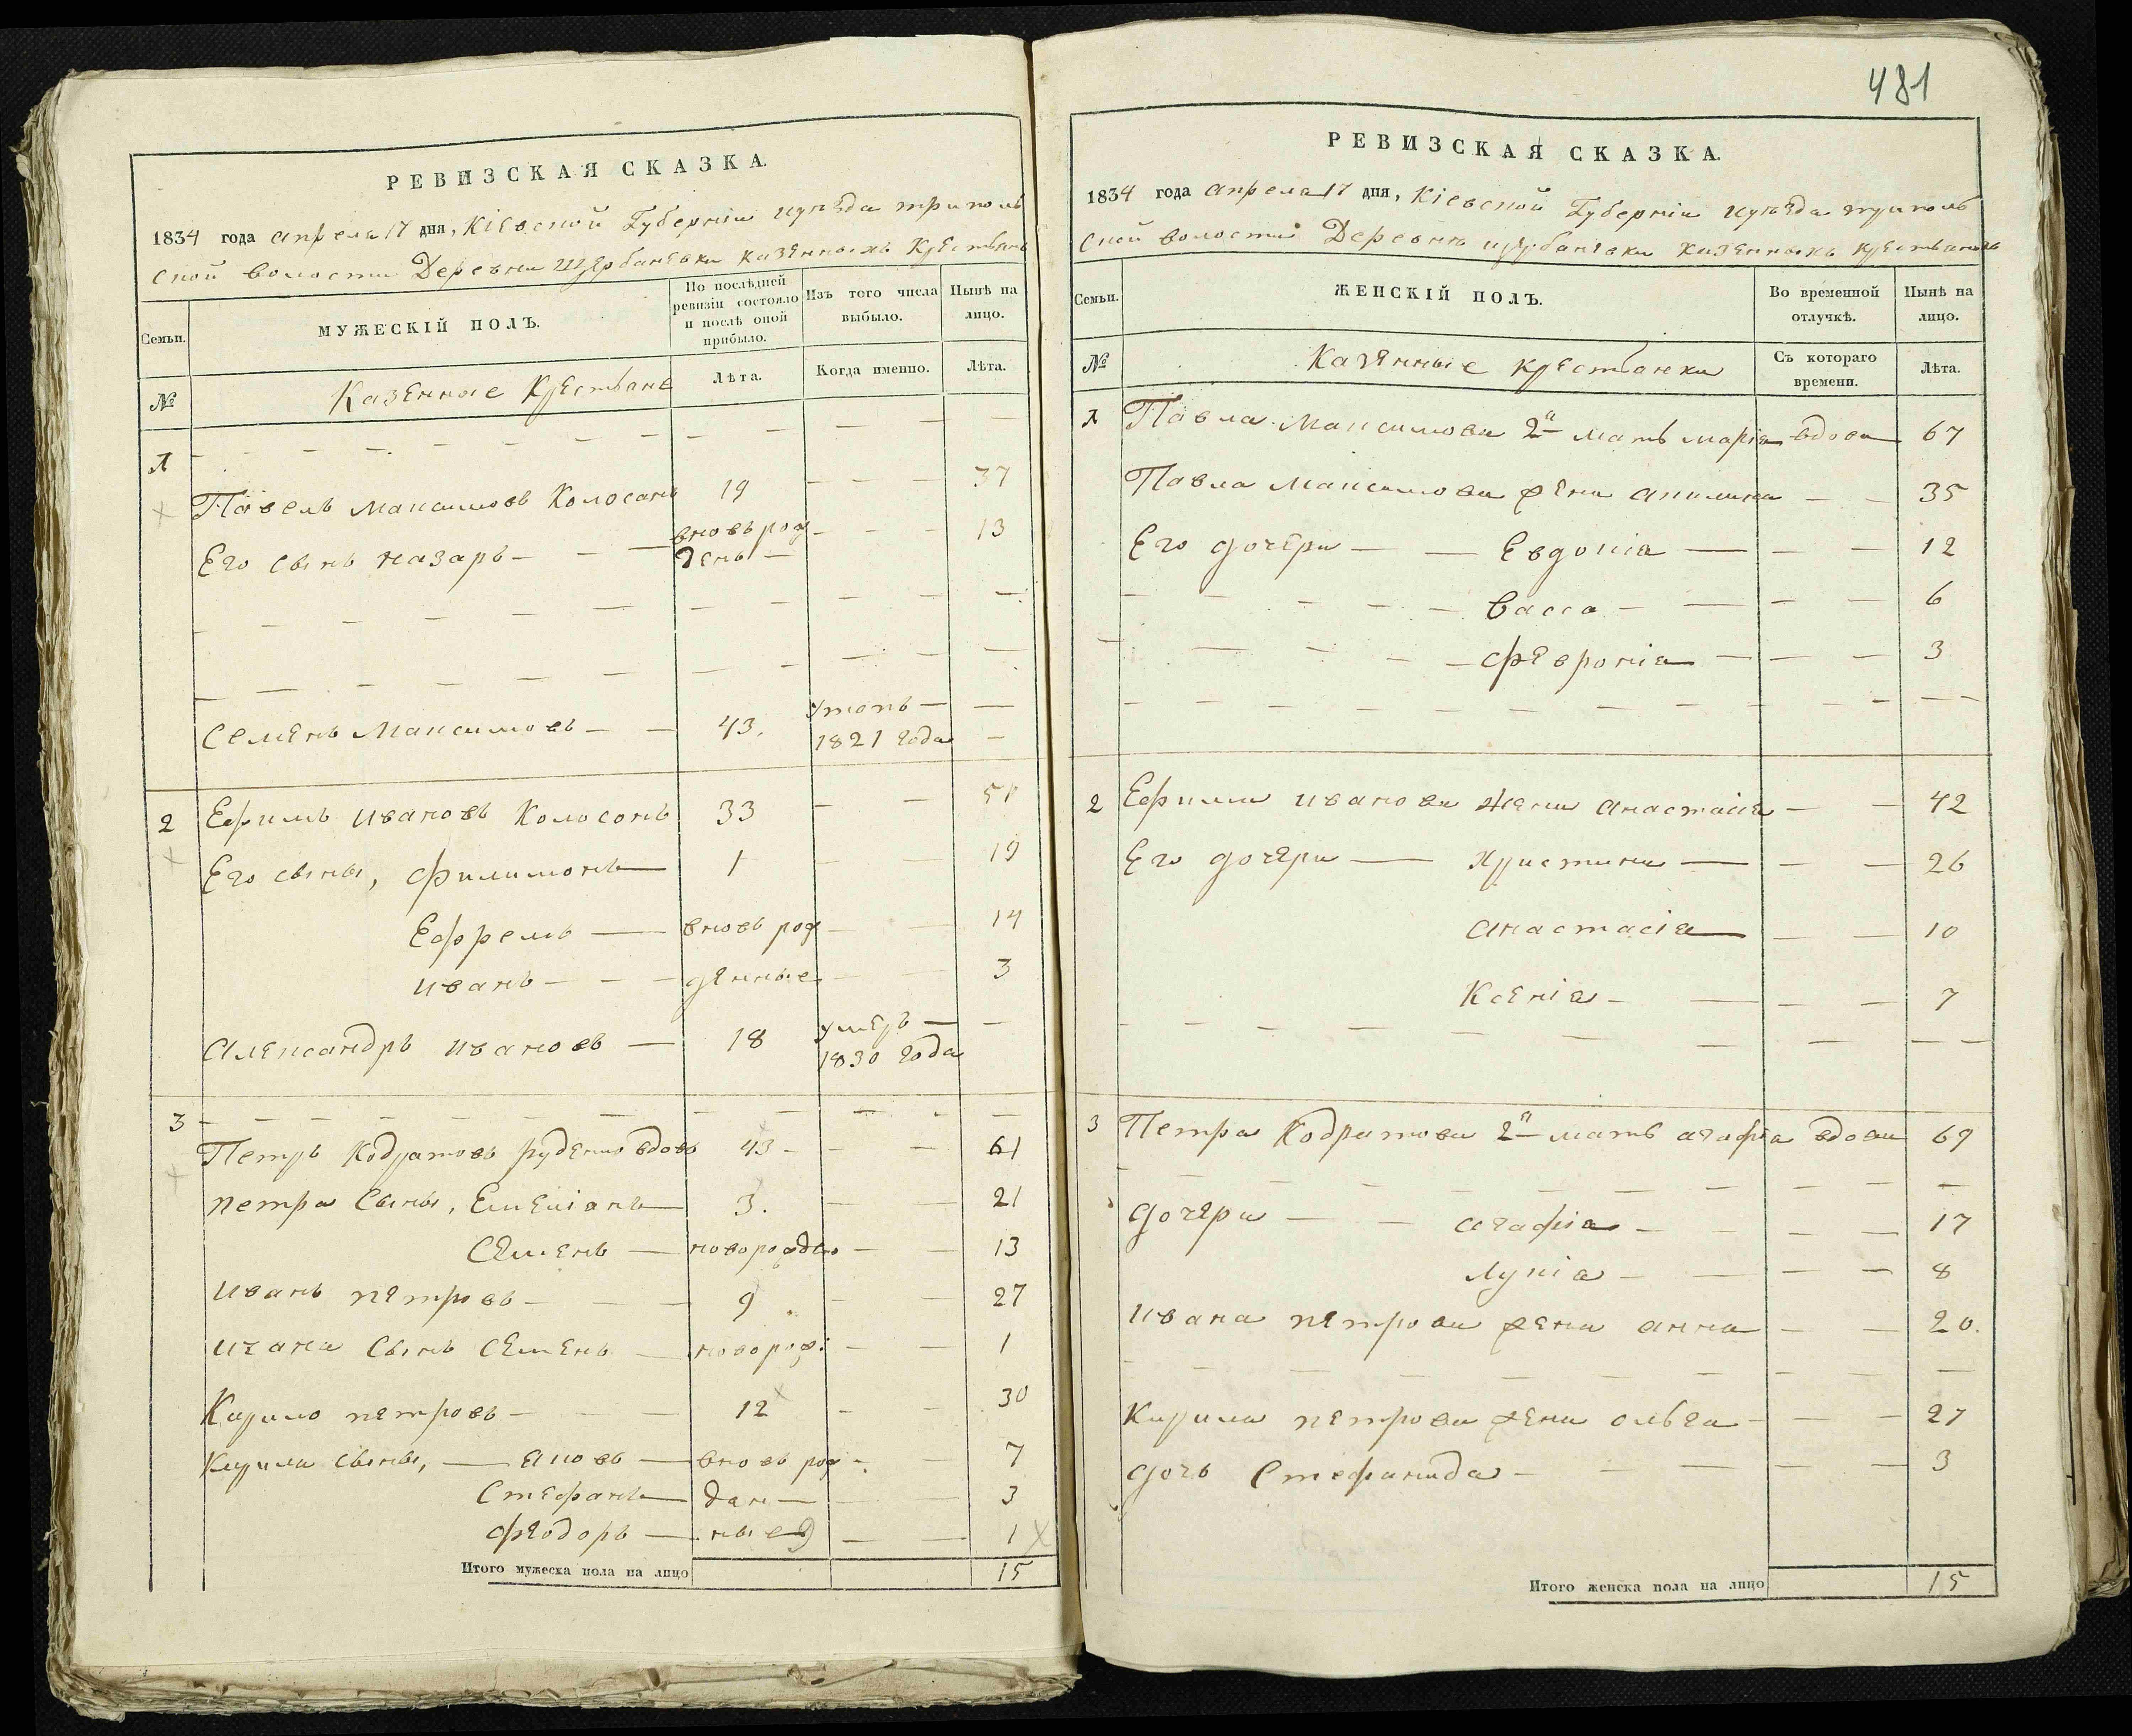 РЕВИЗСКАЯ СКАЗКА.
1834 года апреля 17 дня, Кіевской Губерніи и уѣзда триполь
ской волости Деревни Щербаневки казенныхъ Крестьянъ
Семьи.
МУЖЕСКІЙ ПОЛЪ.
По послѣдней ревизіи состояло и послѣ оной прибыло.
Изъ того числа выбыло.
Нынѣ на лицо.
№
Казенные Крестьяне
Лѣта.
Когда именно.
Лѣта.
1
Павелъ Максимовъ 19 37
Его сынъ назаръ вновь рож 13
денъ
Семенъ Максимовъ 43. утопъ
1821 года
2 Ефимъ Ивановъ 33 51
Его сыны, Филимонъ 1 19
Ефремъ вновь рож 14
Иванъ денные 3
Александръ Ивановъ 18 умеръ
1830 года
3
Петръ Кодратовъ руденко вдовъ 43 61
Петра Сыны, Емеліанъ 3. 21
Семенъ 13
Иванъ петровъ 9 27
Ивана Сынъ Семенъ новорож: 1
Кирило петровъ 12 30
Кирила сыны, яковъ вновь рож 7
Стефанъ ден 3
Феодоръ ные 1
Итого мужеска пола на лицо 15
481
РЕВИЗСКАЯ СКАЗКА.
1834 года апреля 17 дня, Кіевской Губерніи и уѣзда триполь
ской волости Деревни щербаневки казенныхъ крестьянъ
Семьи.
ЖЕНСКІЙ ПОЛЪ.
Во временной отлучкѣ.
Нынѣ на лицо.
№
Казенные крестьянки
Съ котораго времени.
Лѣта.
1 Павла Максимова 2я мать марія вдова 67
Павла Максимова жена акилина 35
Его дочери Евдокія 12
Васса 6
Февронія 3
2 Ефима Иванова Жена анастасія 42
Его дочери христина 26
анастасія 10
Ксенія 7
3 Петра Кодратова 2я мать агафіа вдова 69
дочери агафіа 17
Лукіа 8
Ивана петрова жена анна 20.
Кирила петрова жена ольга 27
дочь Стефанида 3
Итого женска пола на лицо 15